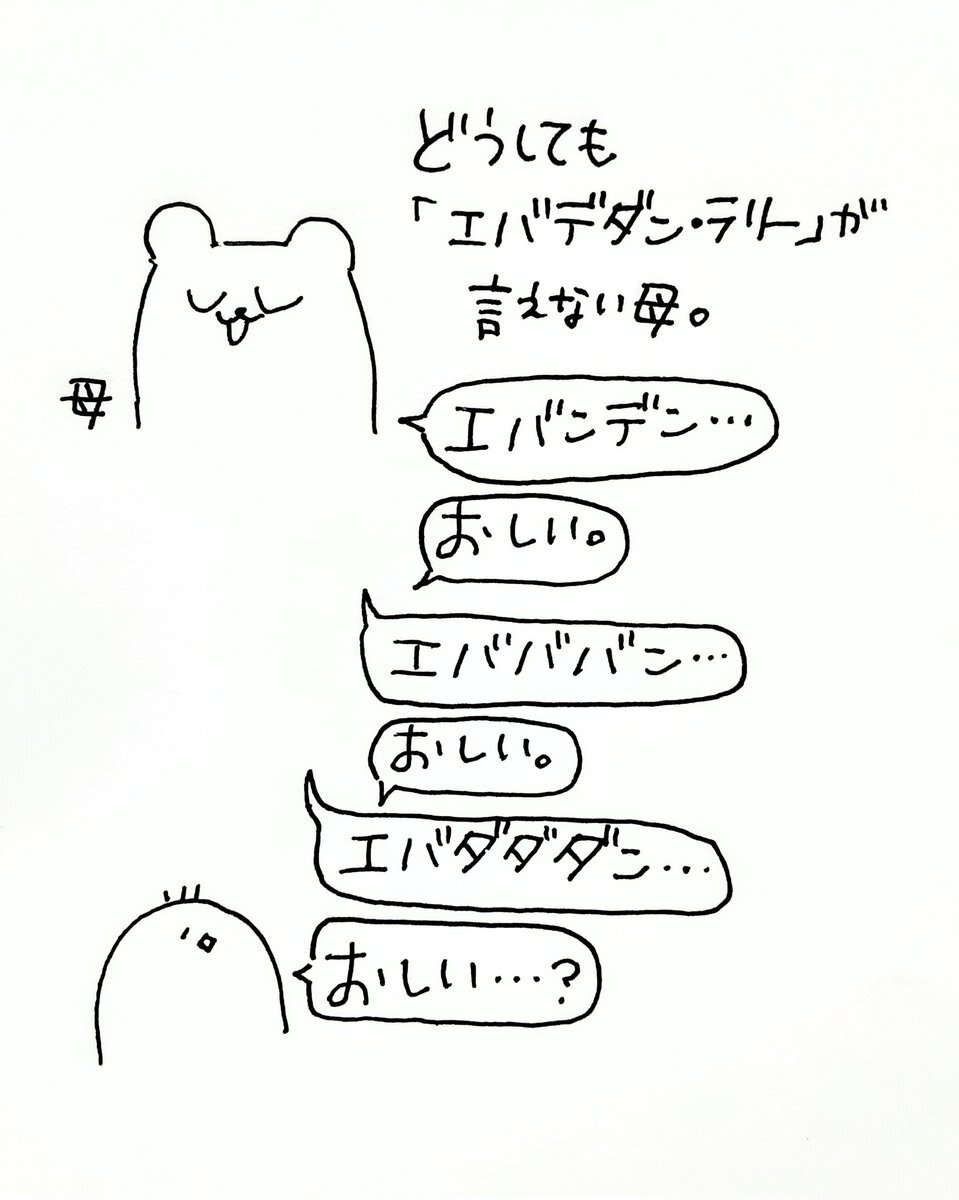 どうしても
「エバデダン・ラリー」が
言えない母。
母
エバンデン…
おしい。
エバババン…
おしい。
エバダダダン…
おしい…?